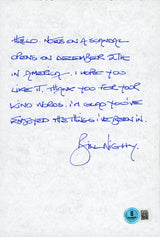 HELLO. NOTES ON A SCANDAL
OPENS ON DECEMBER 27TH
IN AMERICA. I HOPE YOU
LIKE IT. THANK YOU FOR YOUR
KIND WORDS. I'M GLAD YOU'VE
ENJOYED THE THINGS I'VE BEEN IN.
Bill Nighy